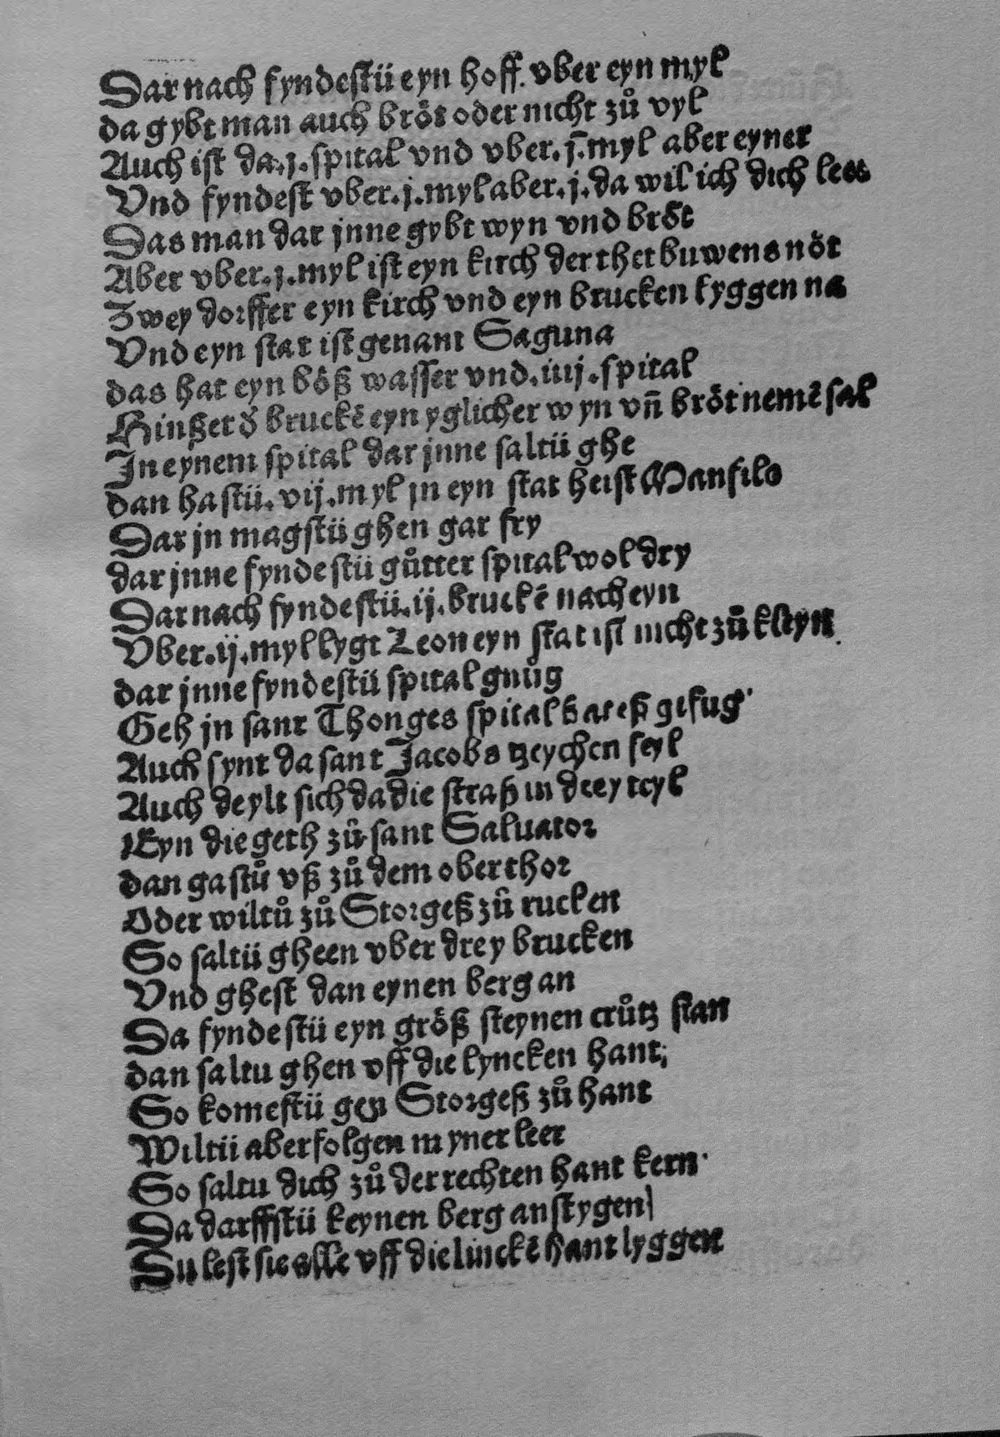 Dar nach fyndestü eyn hoff. vber eyn myl
da gybt man auch bröt oder nicht zů vyl
Auch ist da .j. spital vnd vber .j. myl aber eyner
Vnd fyndest vber .j. myl aber .j. da wil ich dich leer
Das man dar jnne gybt wyn vnd bröt
Aber vber .j. myl ist eyn kirch der thet buwens nöt
Zwey dorffer eyn kirch vnd eyn brucken lyggen na
Vnd eyn stat ist genant Saguna
das hat eyn böß wasser vnd .iiij. spital
Hinßet d̄ bruckē eyn yglicher wyn vn̄ bröt nemē sal
In eynem spital dar jnne saltü ghe
dan hastü .vij. myl jn eyn stat heist Mansilo
Dar jn magstü ghen gar fry
dar jnne fyndestü gůtter spital wol dry
Dar nach fyndestü .ij. bruckē nach eyn
Vber .ij. myl lygt Leon eyn stat ist nicht zů kleyn
dar jnne fyndestü spital gnůg
Geh jn sant Thonges spital da eß gefug
Auch synt da sant Jacobs tzeychen feyl
Auch deylt sich da die straß in drey teyl
Eyn die geth zů sant Saluator
dan gastů vß zů dem ober thor
Oder wiltů zů Storgeß zů rucken
So saltü gheen vber drey brucken
Vnd ghest dan eynen berg an
Da fyndestü eyn größ steynen crůtz stan
dan saltu ghen vff die lyncken hant
So komestü gen Storgeß zů hant
Wiltü aber folgen myner leer
So saltu dich zů der rechten hant kern
Da darffstü keynen berg an stygen
Du lest sie alle vff die linckē hant lyggen